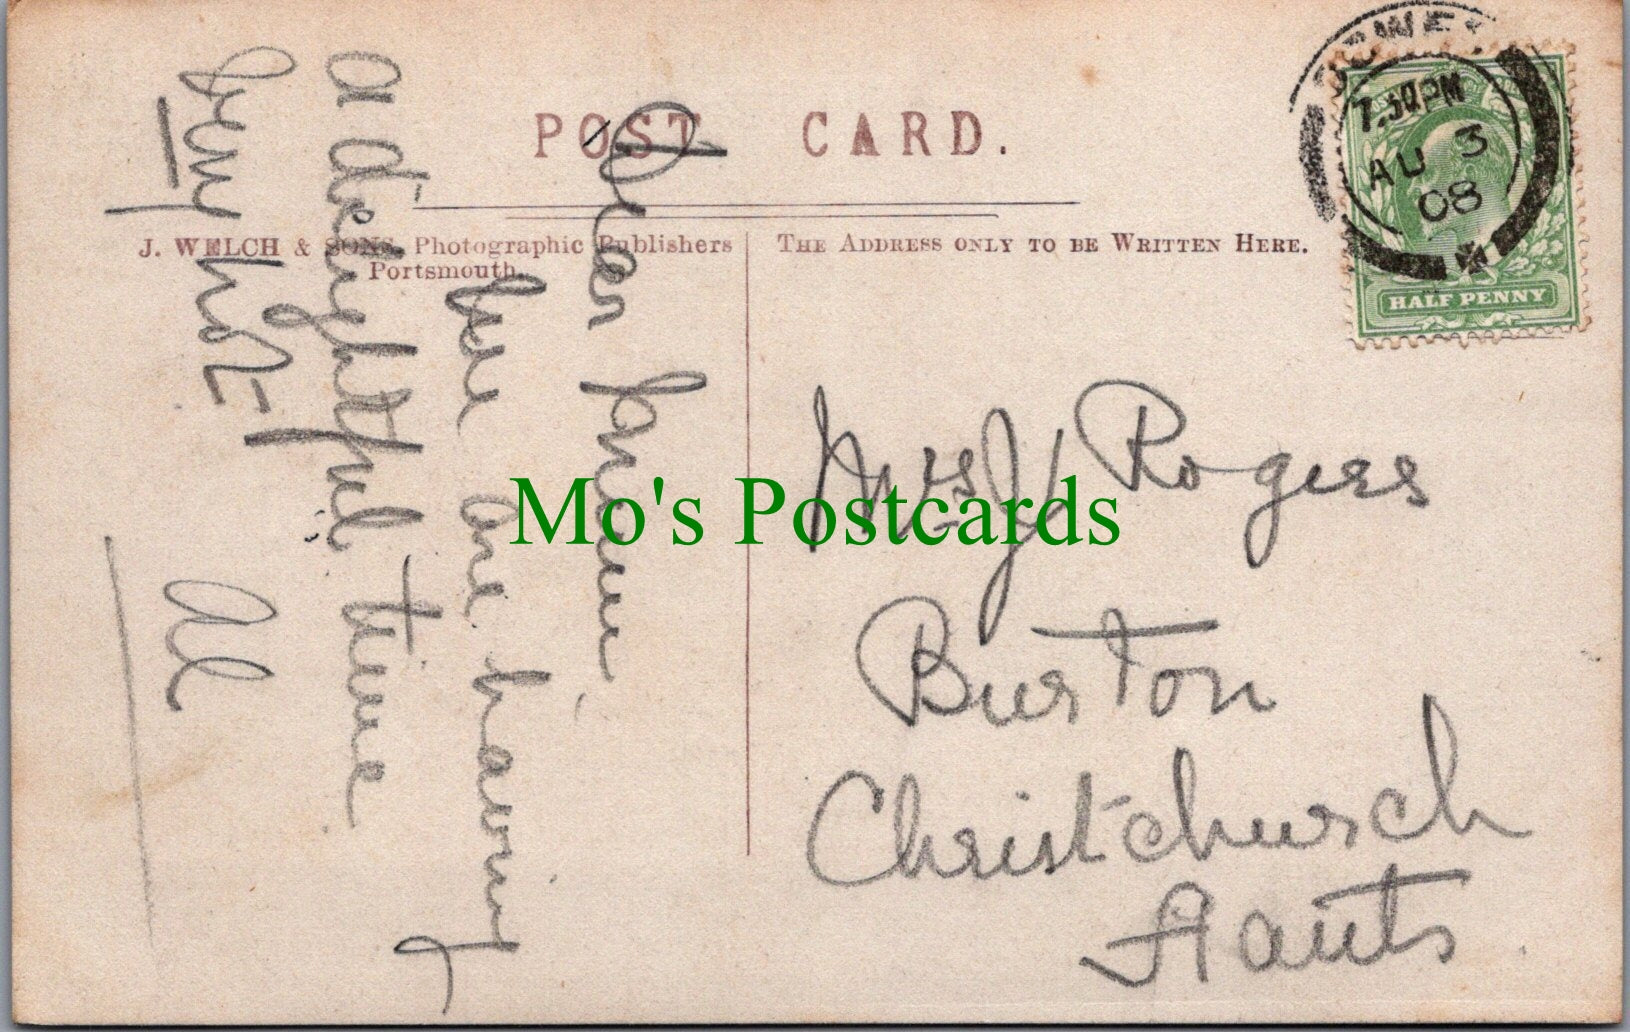 POST CARD.
J. WELCH & SONS, Photographic Publishers
Portsmouth.
THE ADDRESS ONLY TO BE WRITTEN HERE.
COWES
7.30PM
AU 3
08
HALF PENNY
Mrs J Rogers
Burton
Christchurch
Hants
Dear
We are having
a delightful time
Very hot
Mo's Postcards